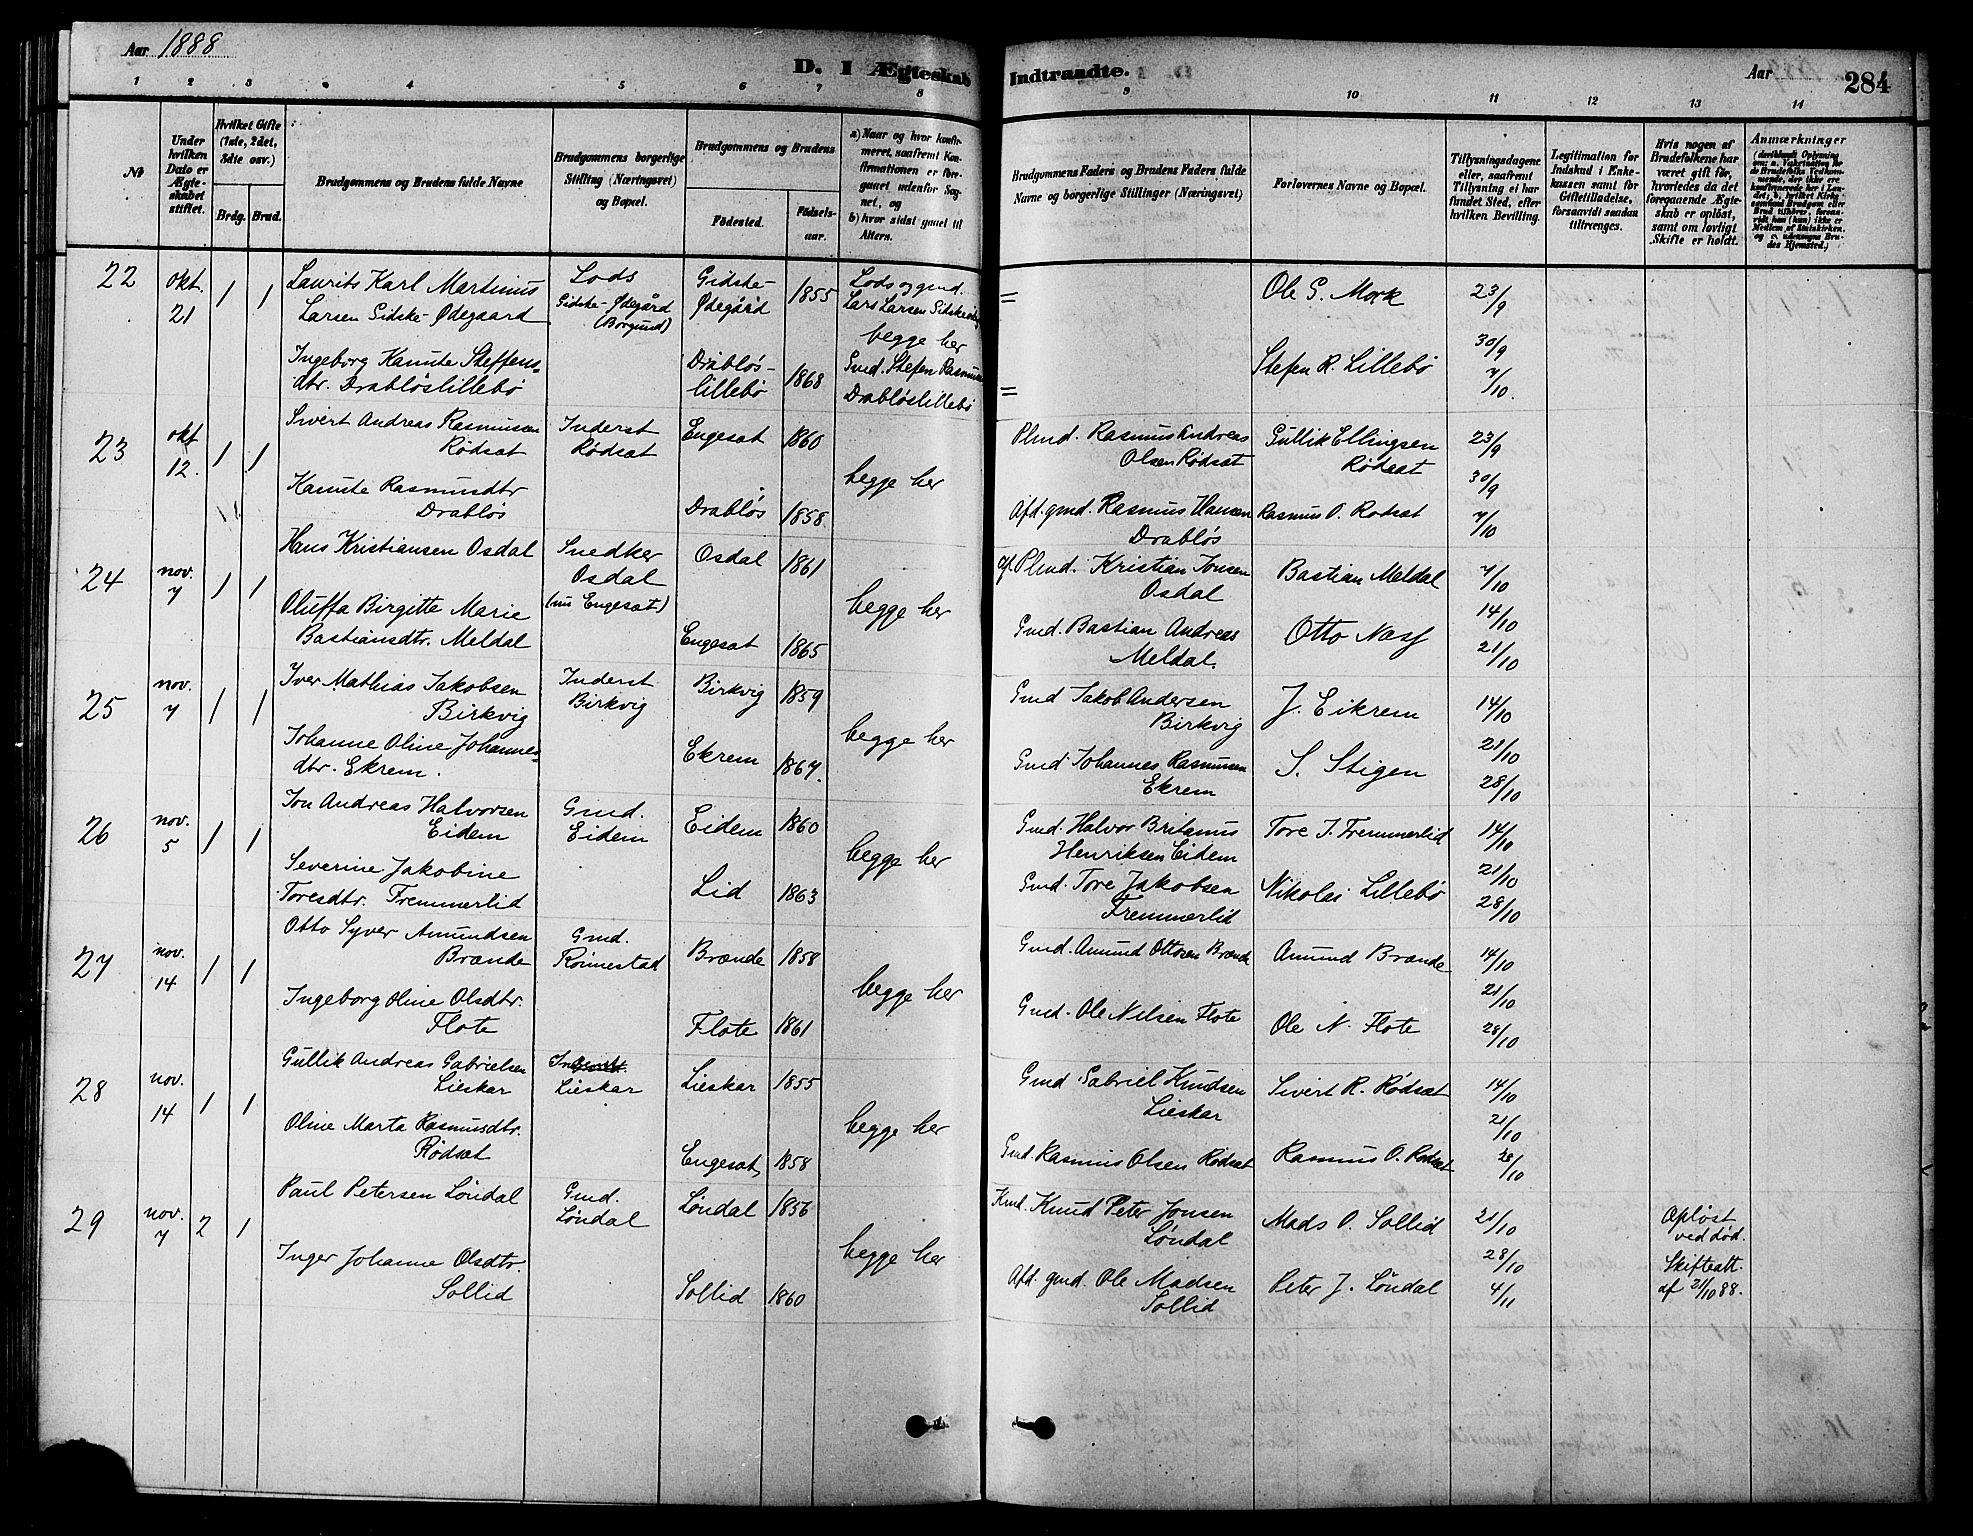 Aar 1888
D. I Ægteskab Indtraadte.
Aar
284
1 2 3 4 5 6 7 8 9 10 11 12 13 14
No
Under hvilken Dato er Ægteskabet stiftet.
Hvilket Gifte (1ste, 2det, 3die osv.)
Brdg. Brud.
Brudgommens og Brudens fulde Navne
Brudgommens borgerlige Stilling (Næringsvei) og Bopæl.
Brudgommens og Brudens
Fødested.
Fødselsaar.
a) Naar og hvor konfirmeret, saafremt Konfirmationen er foregaaet udenfor Sognet, og
b) hvor sidst gaaet til Alters.
Brudgommens Faders og Brudens Faders fulde Navne og borgerlige Stillinger (Næringsvei)
Forlovernes Navne og Bopæl.
Tillysningsdagene eller, saafremt Tillysning ei har fundet Sted, efter hvilken Bevilling.
Legitimation for Indskud i Enkekassen samt for Giftetilladelse, forsaavidt saadan tiltrænges.
Hvis nogen af Brudefolkene har været gift før, hvorledes da det foregaaende Ægteskab er opløst, samt om lovligt Skifte er holdt.
Anmærkninger
22 okt. 21 1 1 Laurits Karl Martinius Larsen Gidske-Ødegaard
Lods Gidske-Ødegård (Borgund)
Gidske-Ødegård 1855
Lods og gmd. Lars Larsen
begge her
= Ole G. Mork 23/9
Ingeborg Kanute Steffensdtr. Drabløslillebø
Drabløs-lillebø 1868
Gmd. Stefen Rasmus Drabløslillebø
= Stefen R. Lillebø 30/9 7/10.
23 okt 12. 1 1 Sivert Andreas Rasmussen Rødsat
Inderst Rødsat
Engesat 1860
begge her
Plmd. Rasmus Andreas Olsen Rødsat
Gullik Ellingsen Rødsat
23/9
Kanute Rasmusdtr Drabløs
Drabløs 1858.
Afd. gmd. Rasmus Hansen Drabløs
Rasmus O. Rødsat
30/9 7/10
24 nov. 7 1 1 Hans Kristiansen Osdal
Snedker Osdal (nu Engesat)
Osdal 1861
begge her
af. Plmd. Kristian Jonsen Osdal
Bastian Meldal
7/10
Oluffa Birgitte Marie Bastiansdtr. Meldal
Engesat 1865
Gmd. Bastian Andreas Meldal.
Otto Næss
14/10 21/10
25 nov. 7 1 1 Iver Mathias Jakobsen Birkvig
Inderst Birkvig
Birkvig 1859
begge her
Gmd Jakob Andersen Birkvig
J. Eikrem
14/10
Johanne Oline Johannesdtr. Ekrem.
Ekrem 1867.
Gmd Johannes Rasmussen Ekrem
S. Stigen
21/10 28/10
26 nov. 5 1 1 Jon Andreas Halvorsen Eidem
Gmd. Eidem
Eidem 1860
begge her
Gmd. Halvor Britanus Henriksen Eidem
Tore J. Fremmerlid
14/10
Severine Jakobine Toresdtr. Fremmerlid
Lid 1863
Gmd. Tore Jakobsen Fremmerlid
Nikolai Lillebø
21/10 28/10
27 nov. 14 1 1 Otto Syver Amundsen Brænde
Gmd. Rønnestad
Brænde 1858
begge her
Gmd. Amund Ottosen Brænde
Amund Brænde
14/10
Ingeborg Oline Olsdtr. Flote
Flote 1861
Gmd. Ole Nilsen Flote
Ole N. Flote
21/10 28/10
28 nov. 14 1 1 Gullik Andreas Gabrielsen Lieskar
Lieskar
Lieskar 1855
begge her
Gmd Gabriel Knudsen Lieskar
Sivert R. Rødsat
14/10
Oline Marta Rasmusdtr. Rødsat
Engesat, 1858
Gmd. Rasmus Olsen Rødsat
Rasmus O. Rødsat
21/10 28/10
29 nov. 7 2 1 Paul Petersen Løndal
Gmd. Løndal
Løndal 1856
begge her
Kmd. Knud Peter Jonsen Løndal
Mads O. Sollid
21/10
Opløst ved død. Skifteatt. af 21/10 88.
Inger Johanne Olsdtr. Sollid
Sollid 1860
Afd. gmd. Ole Madsen Sollid
Peter J. Løndal
28/10 4/11